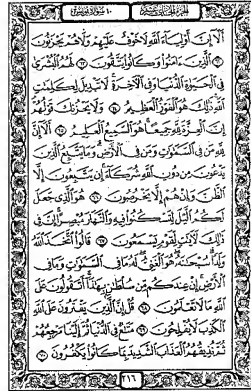 الجزء الحادي عشر ١٠ سورة يونس
أَلَآ إِنَّ أَوْلِيَآءَ ٱللَّهِ لَا خَوْفٌ عَلَيْهِمْ وَلَا هُمْ يَحْزَنُونَ
٦٢ ٱلَّذِينَ ءَامَنُوا۟ وَكَانُوا۟ يَتَّقُونَ ٦٣ لَهُمُ ٱلْبُشْرَىٰ
فِى ٱلْحَيَوٰةِ ٱلدُّنْيَا وَفِى ٱلْءَاخِرَةِ لَا تَبْدِيلَ لِكَلِمَٰتِ
ٱللَّهِ ذَٰلِكَ هُوَ ٱلْفَوْزُ ٱلْعَظِيمُ ٦٤ وَلَا يَحْزُنكَ قَوْلُهُمْ
إِنَّ ٱلْعِزَّةَ لِلَّهِ جَمِيعًا هُوَ ٱلسَّمِيعُ ٱلْعَلِيمُ ٦٥ أَلَآ إِنَّ
لِلَّهِ مَن فِى ٱلسَّمَٰوَٰتِ وَمَن فِى ٱلْأَرْضِ وَمَا يَتَّبِعُ ٱلَّذِينَ
يَدْعُونَ مِن دُونِ ٱللَّهِ شُرَكَآءَ إِن يَتَّبِعُونَ إِلَّا
ٱلظَّنَّ وَإِنْ هُمْ إِلَّا يَخْرُصُونَ ٦٦ هُوَ ٱلَّذِى جَعَلَ
لَكُمُ ٱلَّيْلَ لِتَسْكُنُوا۟ فِيهِ وَٱلنَّهَارَ مُبْصِرًا إِنَّ فِى
ذَٰلِكَ لَءَايَٰتٍ لِّقَوْمٍ يَسْمَعُونَ ٦٧ قَالُوا۟ ٱتَّخَذَ ٱللَّهُ
وَلَدًا سُبْحَٰنَهُۥ هُوَ ٱلْغَنِىُّ لَهُۥ مَا فِى ٱلسَّمَٰوَٰتِ وَمَا فِى
ٱلْأَرْضِ إِنْ عِندَكُم مِّن سُلْطَٰنٍۭ بِهَٰذَآ أَتَقُولُونَ عَلَى
ٱللَّهِ مَا لَا تَعْلَمُونَ ٦٨ قُلْ إِنَّ ٱلَّذِينَ يَفْتَرُونَ عَلَى ٱللَّهِ
ٱلْكَذِبَ لَا يُفْلِحُونَ ٦٩ مَتَٰعٌ فِى ٱلدُّنْيَا ثُمَّ إِلَيْنَا مَرْجِعُهُمْ
ثُمَّ نُذِيقُهُمُ ٱلْعَذَابَ ٱلشَّدِيدَ بِمَا كَانُوا۟ يَكْفُرُونَ ٧٠
٢١٦